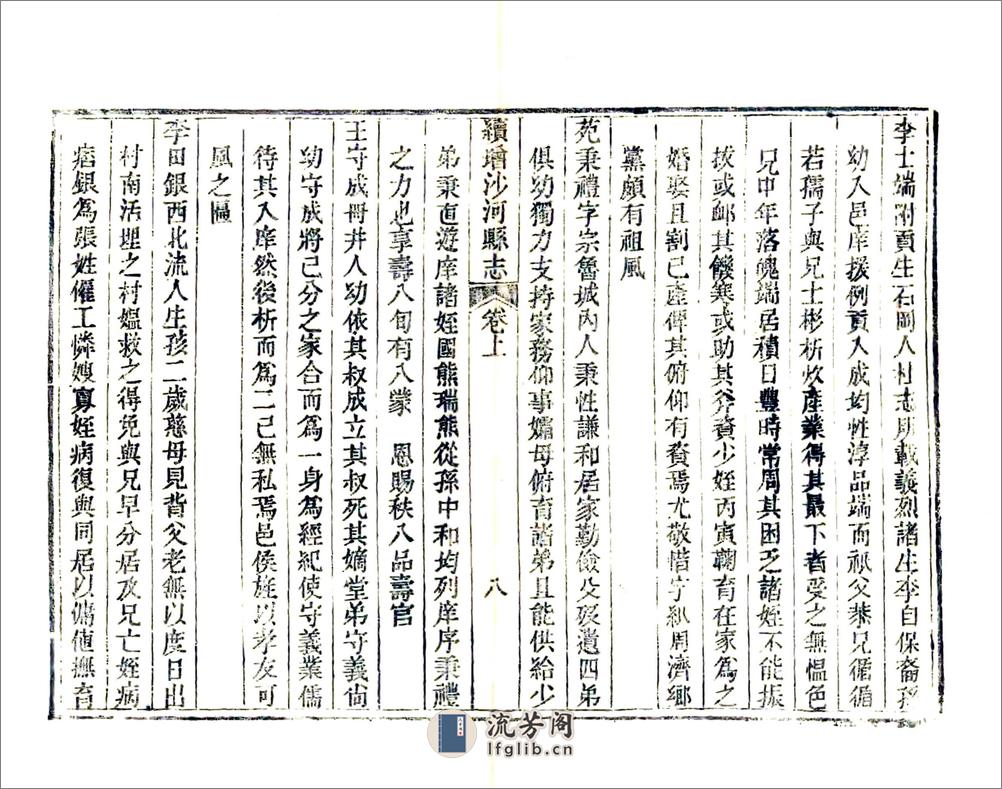 李士端附貢生石岡人村志所載義烈諸生李自保裔孫
幼入邑庠援例貢入成均性淳品端而祇父恭兄循循
若孺子與兄士彬析炊產業得其最下者受之無慍色
兄中年落魄端居積日豐時常周其困乏諸姪不能振
拔或卹其饑寒或助其斧資少姪丙寅鞠育在家為之
婚娶且割己產俾其俯仰有資焉尤敬惜字紙周濟鄉
黨頗有祖風
苑秉禮字宗魯城內人秉性謙和居家勤儉父歿遺四弟
俱幼獨力支持家務仰事孀母俯育諸弟且能供給少
續增沙河縣志 卷上 八
弟秉直遊庠諸姪國熊瑞熊從孫中和均列庠序秉禮
之力也享壽八旬有八蒙 恩賜秩八品壽官
王守成冊井人幼依其叔成立其叔死其嫡堂弟守義尚
幼守成將己分之家合而為一身為經紀使守義業儒
待其入庠然後析而為二己無私焉邑侯旌以孝友可
風之匾
李田銀西北流人生孩二歲慈母見背父老無以度日出
村南活埋之村媼救之得免與兄早分居及兄亡姪病
痞銀為張姓傭工憐嫂寡姪病復與同居以傭值撫育
流芳阁
lfglib.cn